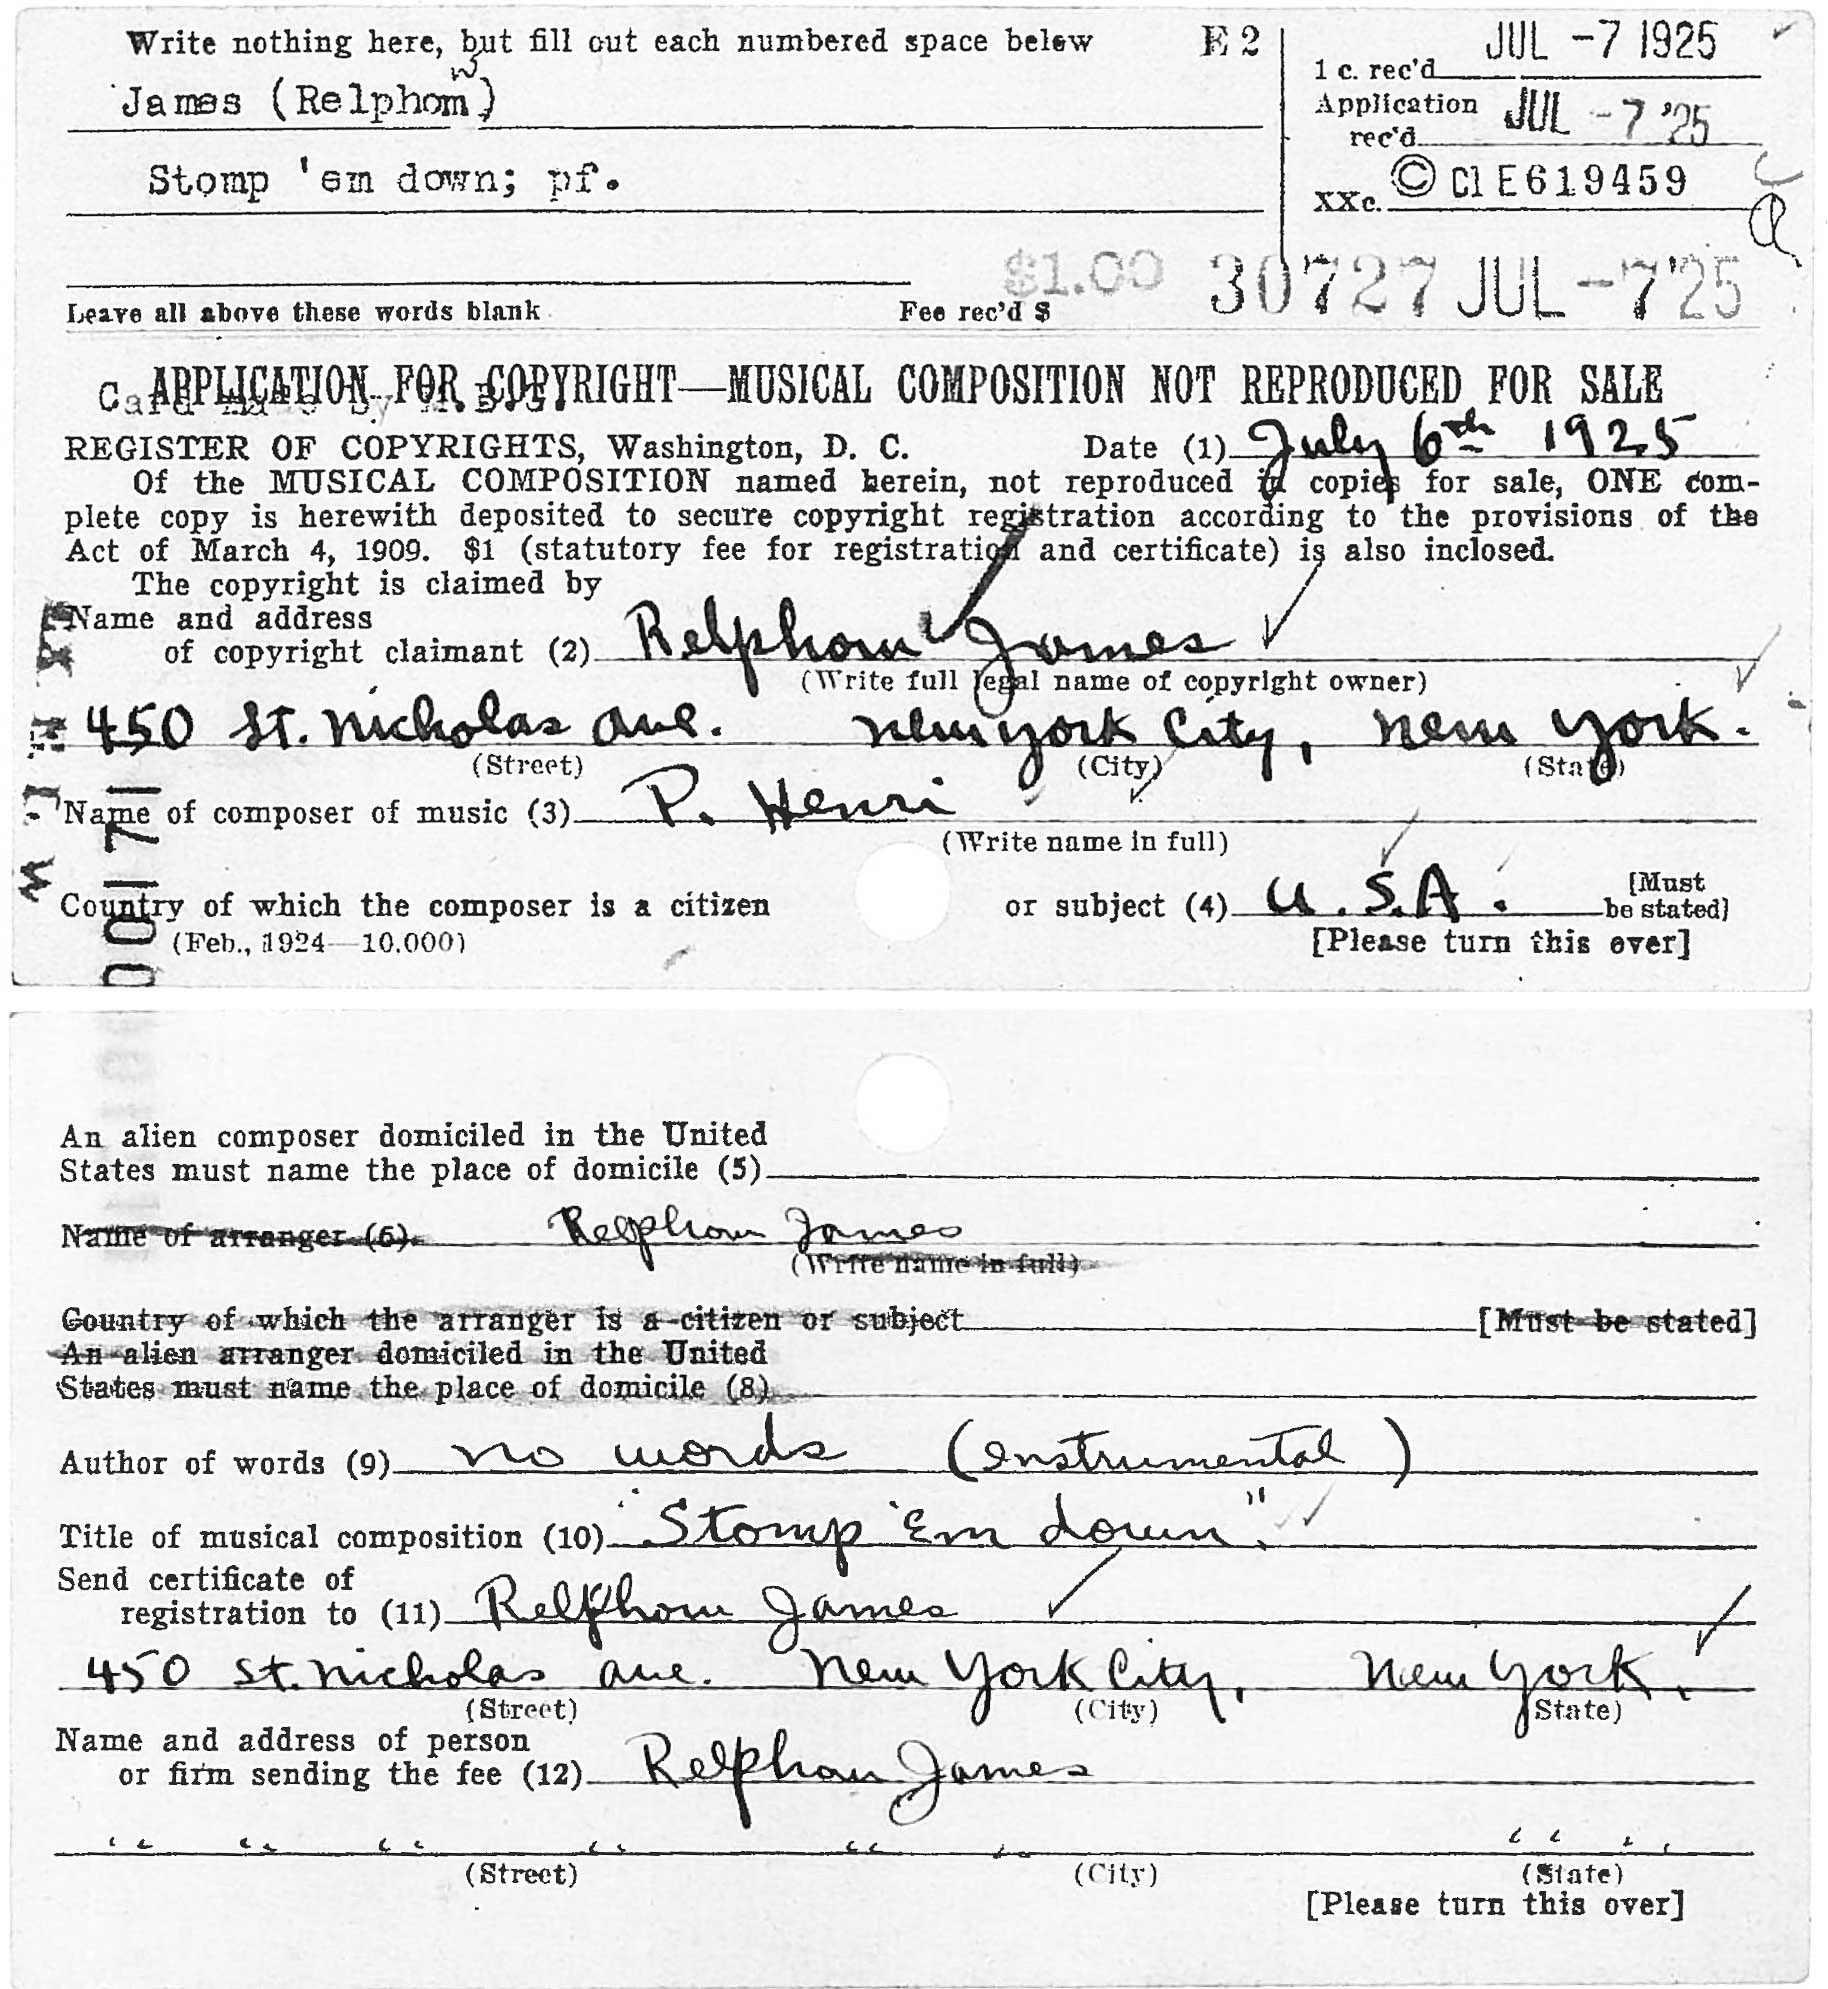 Write nothing here, but fill out each numbered space below
E 2
1 c. rec'd JUL -7 1925
w
James (Relphom)
Application
rec'd JUL -7 '25
Stomp 'em down; pf.
XXc. © Cl E619459
$1.00 30727 JUL -7 '25
Leave all above these words blank Fee rec'd $
APPLICATION FOR COPYRIGHT—MUSICAL COMPOSITION NOT REPRODUCED FOR SALE
REGISTER OF COPYRIGHTS, Washington, D. C. Date (1) July 6th 1925
Of the MUSICAL COMPOSITION named herein, not reproduced in copies for sale, ONE com-
plete copy is herewith deposited to secure copyright registration according to the provisions of the
Act of March 4, 1909. $1 (statutory fee for registration and certificate) is also inclosed.
The copyright is claimed by
Name and address
of copyright claimant (2) Relphow James
(Write full legal name of copyright owner)
450 St. Nicholas Ave. New York City, New York.
(Street) (City) (State)
Name of composer of music (3) P. Henri
(Write name in full)
Country of which the composer is a citizen or subject (4) U.S.A. [Must
be stated]
(Feb., 1924—10,000) [Please turn this over]
An alien composer domiciled in the United
States must name the place of domicile (5)
Name of arranger (6) Relphow James
(Write name in full)
Country of which the arranger is a citizen or subject [Must be stated]
An alien arranger domiciled in the United
States must name the place of domicile (8)
Author of words (9) no words (instrumental)
Title of musical composition (10) "Stomp 'Em down".
Send certificate of
registration to (11) Relphow James
450 St. Nicholas Ave. New York City, New York.
(Street) (City) (State)
Name and address of person
or firm sending the fee (12) Relphow James
" " " " " " " "
(Street) (City) (State)
[Please turn this over]